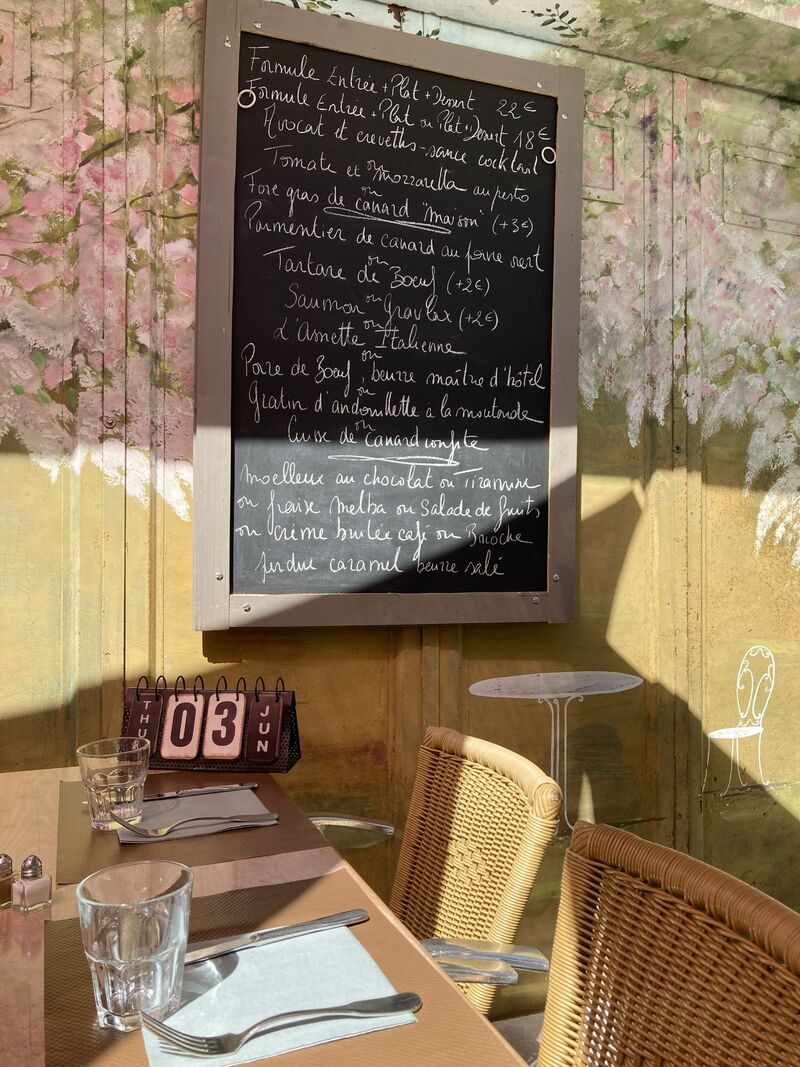 Formule Entrée + Plat + Dessert 22€
Formule Entrée + Plat ou Plat + Dessert 18€
Avocat et crevettes - sauce cocktail
ou
Tomate et mozzarella au pesto
ou
Foie gras de canard "maison" (+3€)
Parmentier de canard au poivre vert
ou
Tartare de Boeuf (+2€)
ou
Saumon Gravlax (+2€)
ou
L'Assiette Italienne
ou
Poire de Boeuf, beurre maître d'hôtel
ou
Gratin d'andouillette à la moutarde
ou
Cuisse de canard confite
moelleux au chocolat ou Tiramisu
ou fraise melba ou salade de fruits
ou crème brulée café ou Brioche
perdue caramel beurre salé
THU 03 JUN